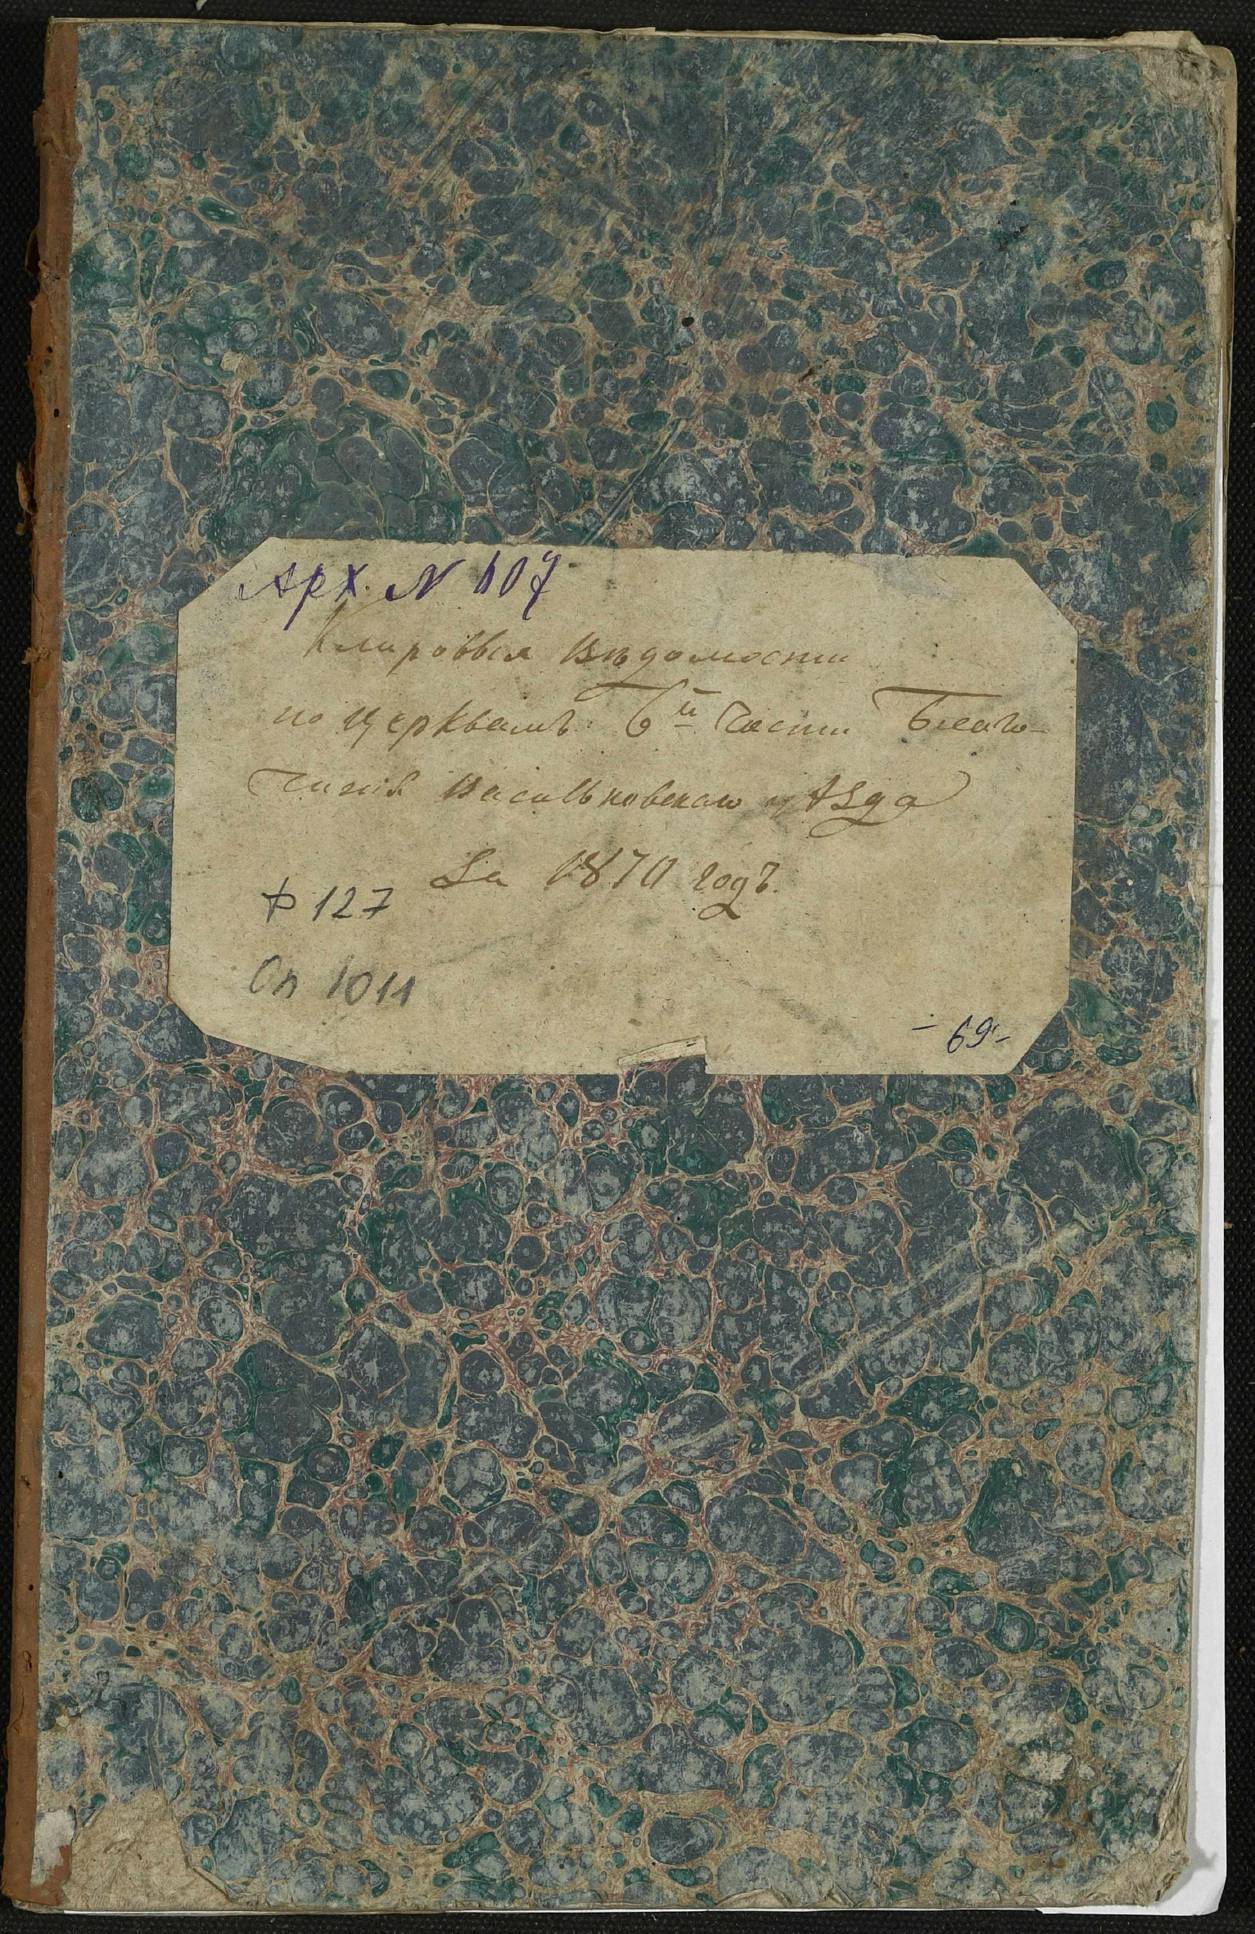 Арх. N 107
Клировыя вѣдомости
по церквамъ 6й части Благо-
чинія Васильковскаго уѣзда
За 1870 годъ.
Ф 127
Оп 1011
- 69 -